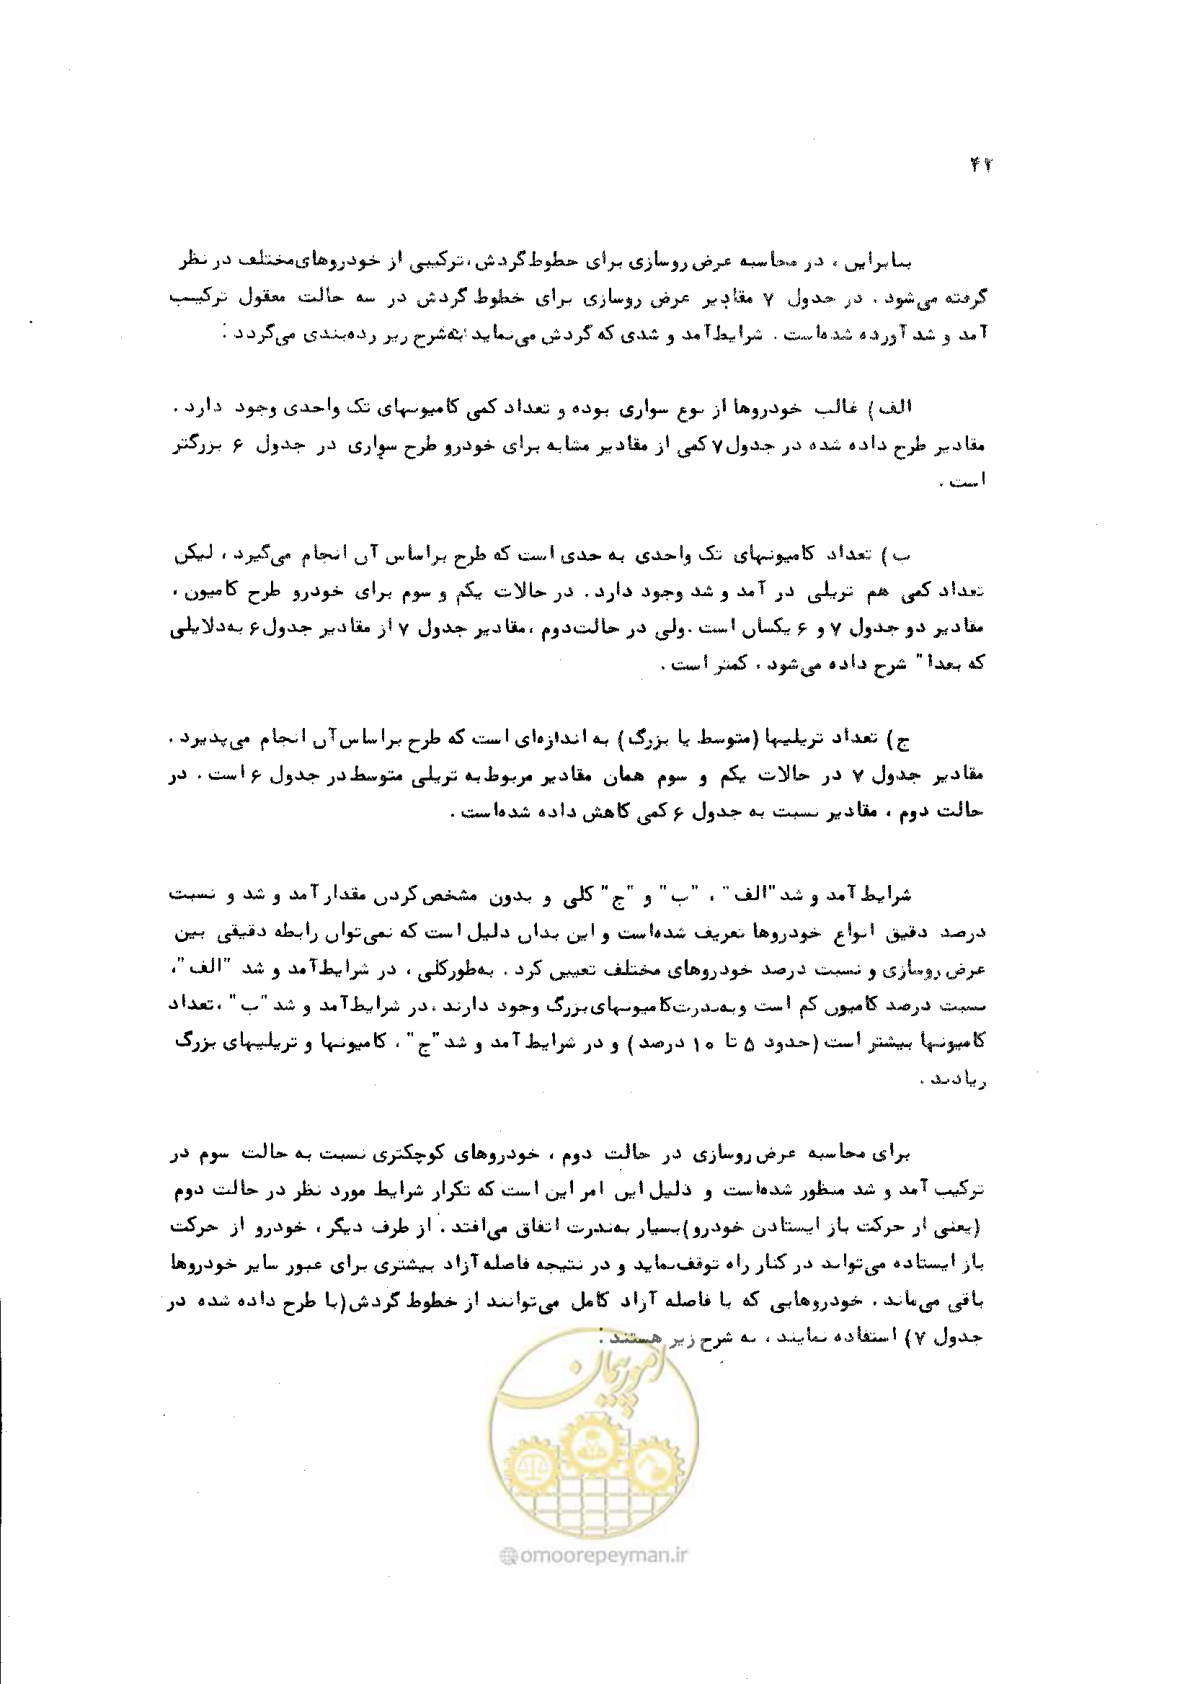 ۴۲
بنابراین ، در محاسبه عرض روسازی برای خطوط گردش ،ترکیبی از خودروهای مختلف در نظر
گرفته می‌شود . در جدول ۷ مقادیر عرض روسازی برای خطوط گردش در سه حالت معقول ترکیب
آمد و شد آورده شده‌است . شرایط آمد و شدی که گردش می‌نماید به‌شرح زیر رده‌بندی می‌گردد :
الف ) غالب خودروها از نوع سواری بوده و تعداد کمی کامیونهای تک واحدی وجود دارد .
مقادیر طرح داده شده در جدول ۷ کمی از مقادیر مشابه برای خودرو طرح سواری در جدول ۶ بزرگتر
است .
ب ) تعداد کامیونهای تک واحدی به حدی است که طرح براساس آن انجام می‌گیرد ، لیکن
تعداد کمی هم تریلی در آمد و شد وجود دارد . در حالات یکم و سوم برای خودرو طرح کامیون ،
مقادیر دو جدول ۷ و ۶ یکسان است .ولی در حالت‌دوم ،مقادیر جدول ۷ از مقادیر جدول ۶ به‌دلایلی
که بعدا" شرح داده می‌شود ، کمتر است .
ج ) تعداد تریلیها (متوسط یا بزرگ ) به اندازه‌ای است که طرح براساس آن انجام می‌پذیرد .
مقادیر جدول ۷ در حالات یکم و سوم همان مقادیر مربوط به تریلی متوسط در جدول ۶ است . در
حالت دوم ، مقادیر نسبت به جدول ۶ کمی کاهش داده شده‌است .
شرایط آمد و شد "الف" ، "ب" و "ج" کلی و بدون مشخص کردن مقدار آمد و شد و نسبت
درصد دقیق انواع خودروها تعریف شده‌است و این بدان دلیل است که نمی‌توان رابطه دقیقی بین
عرض روسازی و نسبت درصد خودروهای مختلف تعیین کرد . به‌طورکلی ، در شرایط آمد و شد "الف"،
نسبت درصد کامیون کم است و به‌ندرت کامیونهای بزرگ وجود دارند ،در شرایط آمد و شد "ب" ،تعداد
کامیونها بیشتر است (حدود ۵ تا ۱۰ درصد ) و در شرایط آمد و شد "ج" ، کامیونها و تریلیهای بزرگ
زیادند .
برای محاسبه عرض روسازی در حالت دوم ، خودروهای کوچکتری نسبت به حالت سوم در
ترکیب آمد و شد منظور شده‌است و دلیل این امر این است که تکرار شرایط مورد نظر در حالت دوم
(یعنی از حرکت باز ایستادن خودرو )بسیار به‌ندرت اتفاق می‌افتد . از طرف دیگر ، خودرو از حرکت
باز ایستاده می‌تواند در کنار راه توقف‌نماید و در نتیجه فاصله آزاد بیشتری برای عبور سایر خودروها
باقی می‌ماند . خودروهایی که با فاصله آزاد کامل می‌توانند از خطوط گردش (با طرح داده شده در
جدول ۷ ) استفاده نمایند ، به شرح زیر هستند :
امور پیمان
@omoorepeyman.ir